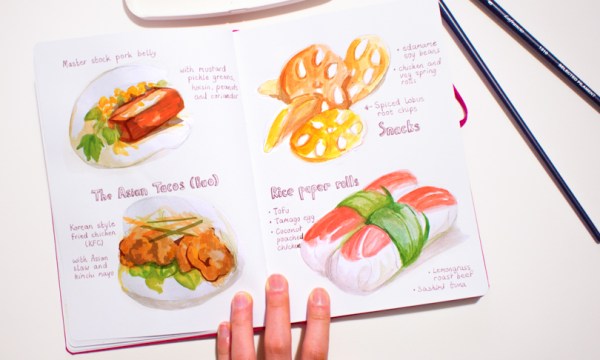 Master stock pork belly
with mustard
pickle greens,
hoisin, peanuts
and coriander
The Asian Tacos (Bao)
Korean style
fried chicken
(KFC)
with Asian
slaw and
kimchi mayo
• edamame
soy beans
• chicken and
veg spring
rolls
• Spiced lotus
root chips
Snacks
Rice paper rolls
• Tofu
• Tamago egg
• Coconut
poached
chicken
• Lemongrass
roast beef
• Sashimi tuna